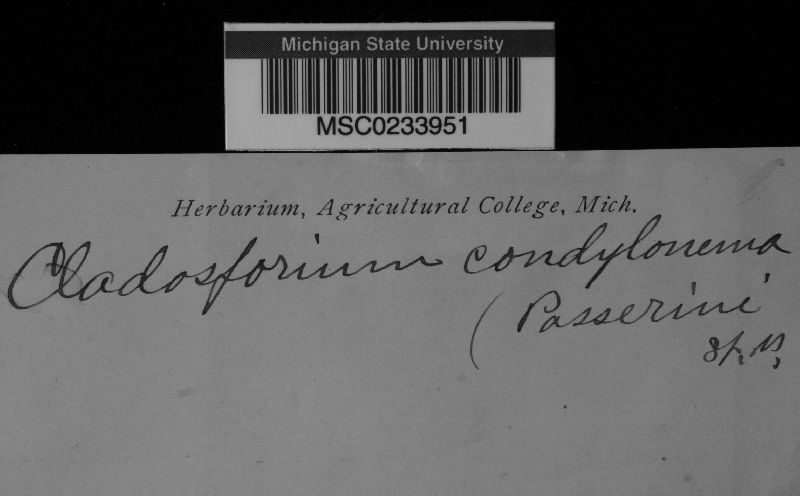 Michigan State University
MSC0233951
Herbarium, Agricultural College, Mich.
Cladosporium condylonema
(Passerini